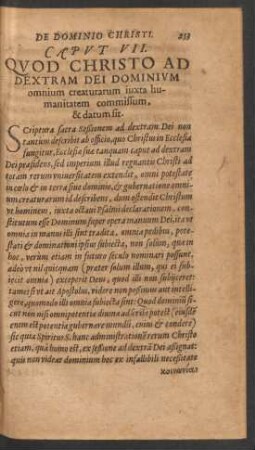 DE DOMINIO CHRISTI. 233
CAPVT VII.
QVOD CHRISTO AD
DEXTRAM DEI DOMINIVM
omnium creaturarum iuxta hu-
manitatem commissum,
& datum sit.
SCriptura sacra Sessionem ad dextram Dei non
tantum describit ab officio, quo Christus in Ecclesia
fungitur, Ecclesiæ suæ tanquam caput ad dextram
Dei præsidens, sed imperium illud regnantis Christi ad
totam rerum vniuersitatem extendit, omni potestate
in cœlo & in terra siue dominio, & gubernatione omni-
um creaturarum id describens, dum ostendit Christum
vt hominem, iuxta octaui Psalmi declarationem, con-
stitutum esse Dominum super opera manuum Dei, ita vt
omnia in manus illi sint tradita, omnia pedibus, pote-
stati & dominationi ipsius subiecta, non solùm, quæ in
hoc, verùm etiam in futuro seculo nominari possunt,
adeò vt nil quicquam (præter solum illum, qui ei subi-
iecit omnia) exceperit Deus, quod illi non subijceret:
tametsi vt ait Apostolus, videre non possimus aut intelli-
gere, quomodo illi omnia subiecta sint: Quod dominiū si-
cut non nisi omnipotentiæ diuinæ
est potentia gubernare mundū, cuius & condere)
sic quia Spiritus S. hanc administrationē rerum Christo
etiam, quà homo est, ex sessione ad dextrā Dei assignat:
quis non videat dominium hoc ex infallibili necessitate